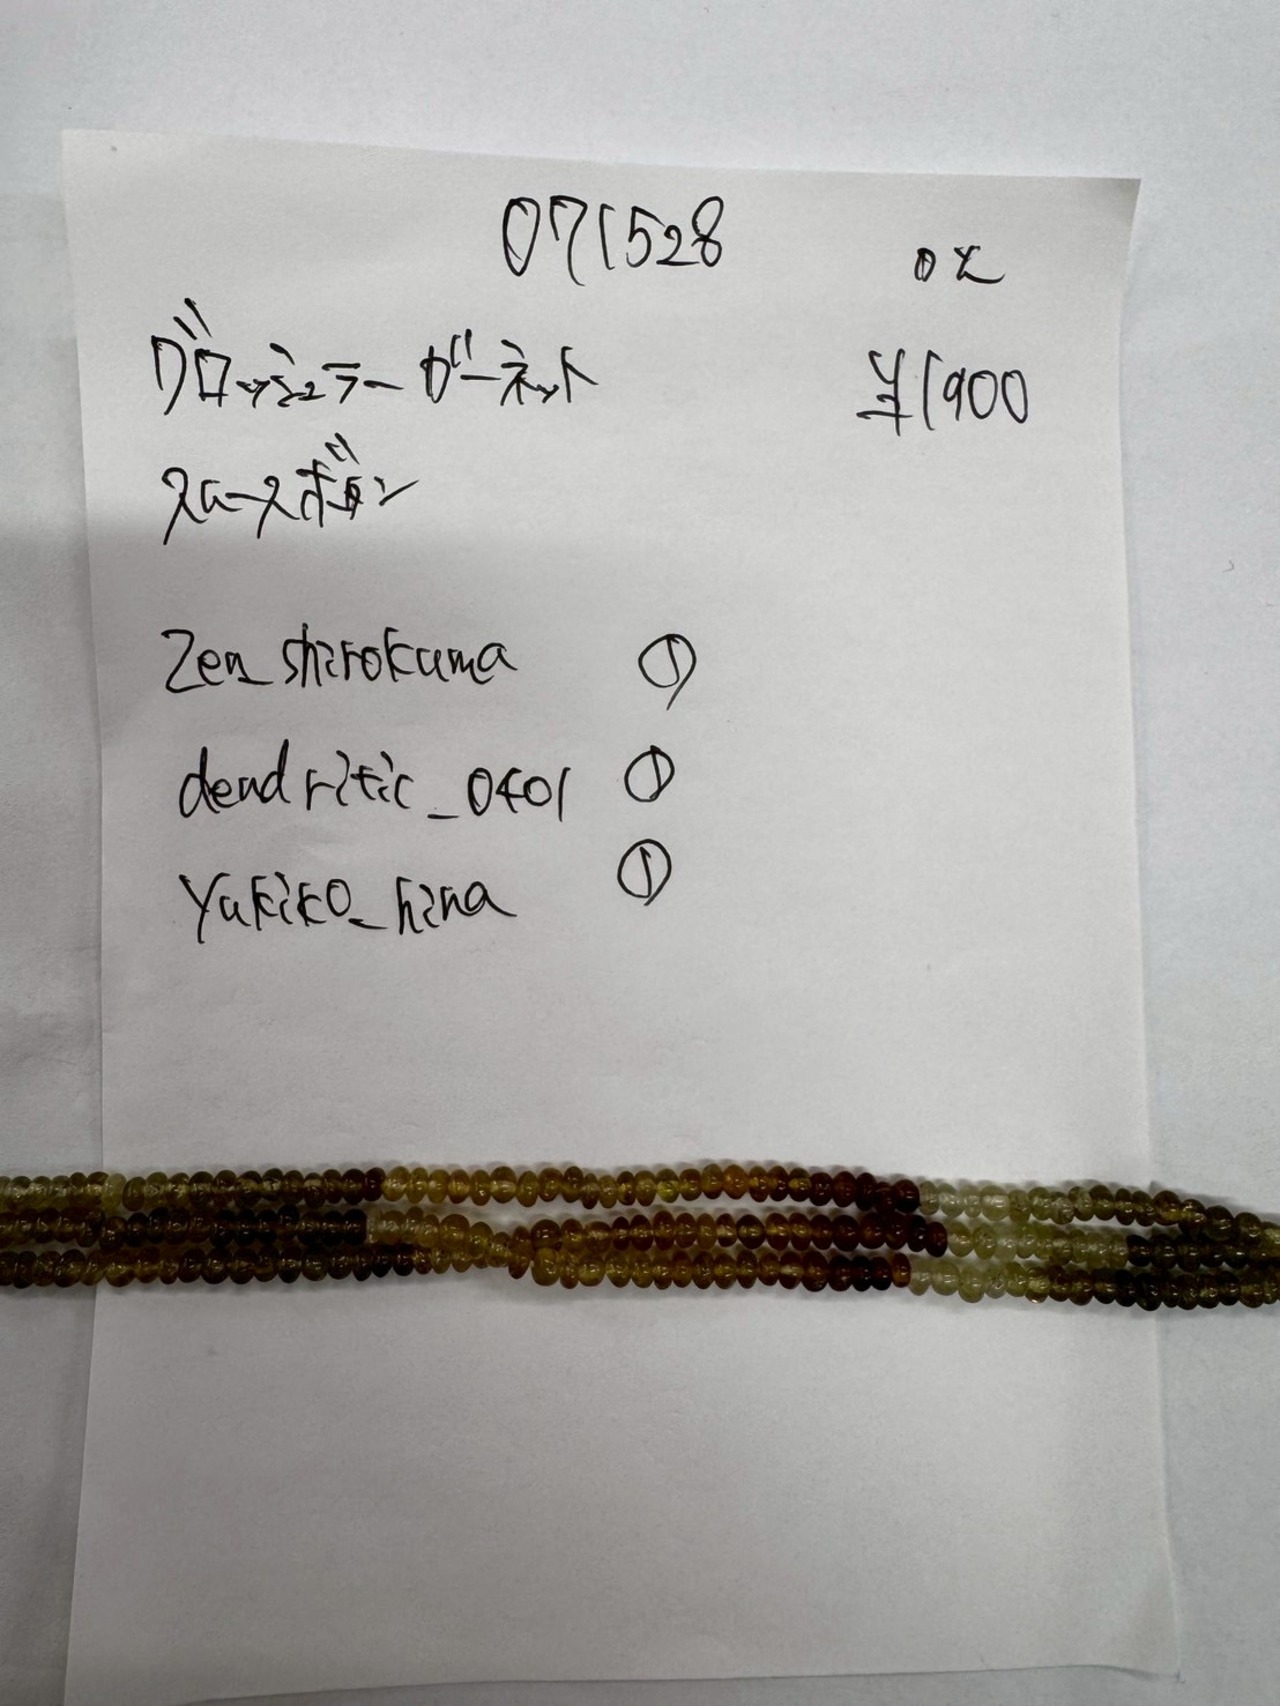 071528
OK
グロッシュラーガーネット
¥1900
スムースボタン
Zen_shirokuma ①
dendritic_0401 ①
Yukiko_hina ①